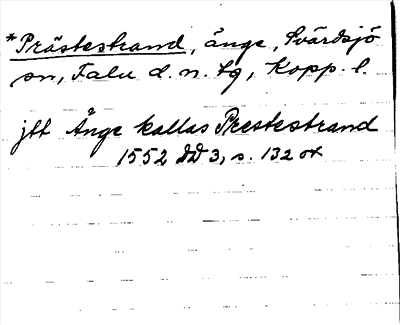 *Prästestrand, änge, Svärdsjö
sn, Falu d. n. tg, Kopp. l.
jtt Änge kallas Prestestrand
1552 DD 3, s. 132 ox